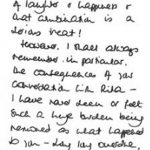 of laughter & happiness &
that combination is a
serious treat!
However, I shall always
remember in particular,
the consequences of our
conversation in
I have never seen or felt
such a huge burden being
removed as what happened
to you – day